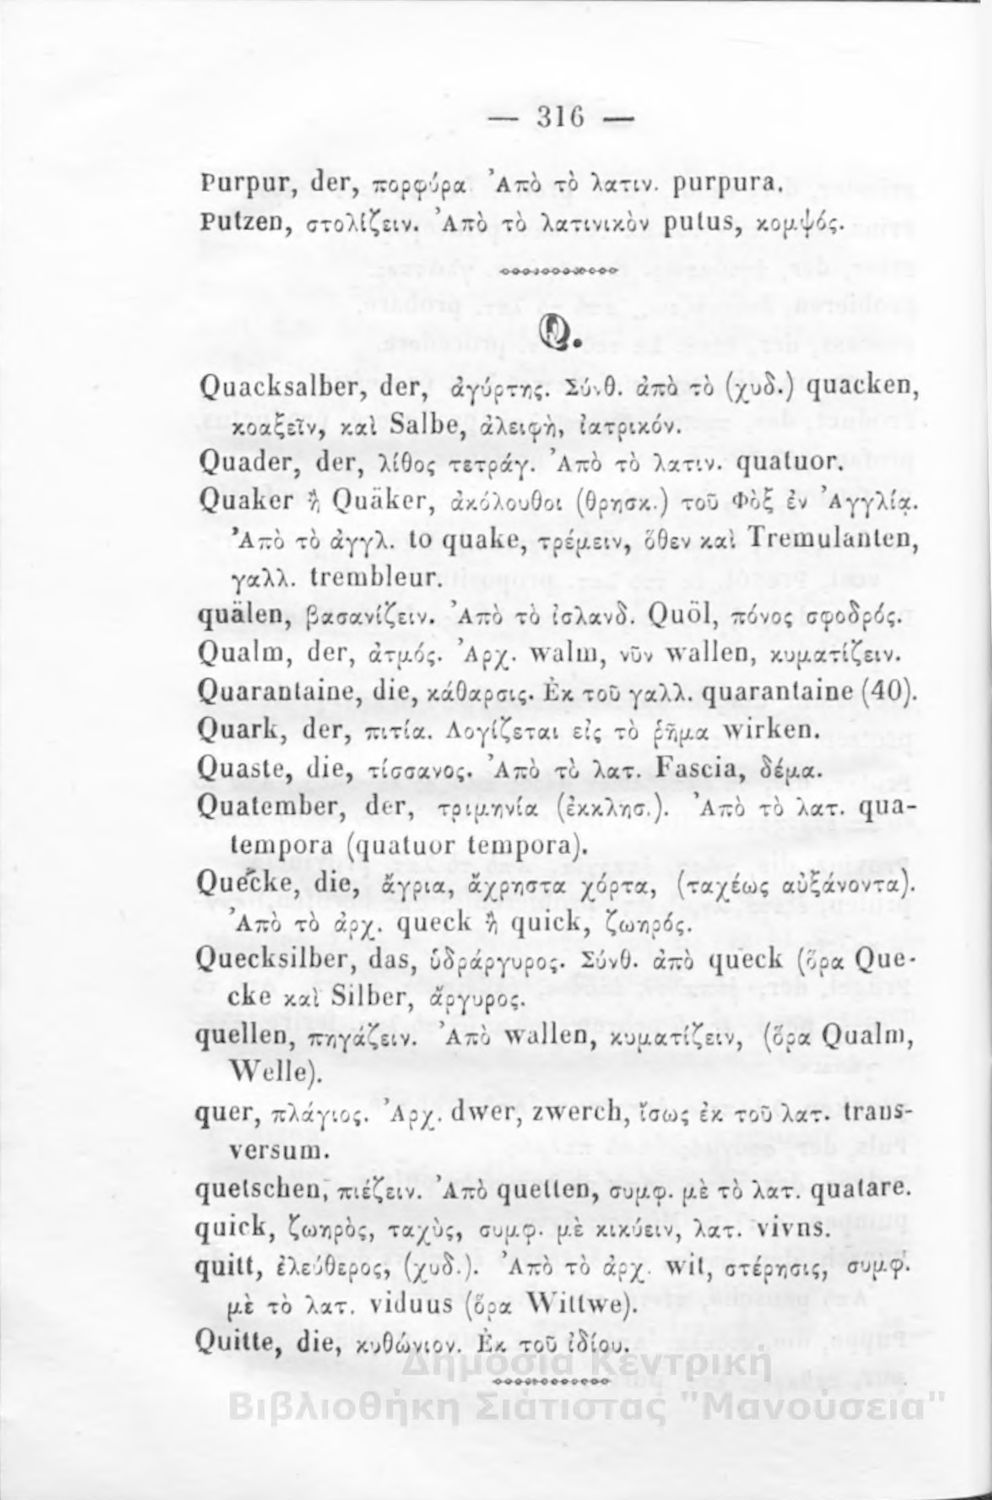 — 316 —
Purpur, der, πορφύρα Ἀπὸ τὸ λατιν. purpura.
Putzen, στολίζειν. Ἀπὸ τὸ λατινικὸν putus, κομψός.
Q.
Quacksalber, der, ἀγύρτης. Σύνθ. ἀπὸ τὸ (χυδ.) quacken,
κοαξεῖν, καὶ Salbe, ἀλειφὴ, ἰατρικόν.
Quader, der, λίθος τετράγ. Ἀπὸ τὸ λατιν. quatuor.
Quaker ἢ Quäker, ἀκόλουθοι (θρησκ.) τοῦ Φὸξ ἐν Ἀγγλίᾳ.
Ἀπὸ τὸ ἀγγλ. to quake, τρέμειν, ὅθεν καὶ Tremulanten,
γαλλ. trembleur.
quälen, βασανίζειν. Ἀπὸ τὸ ἰσλανδ. Quöl, πόνος σφοδρός.
Qualm, der, ἀτμός. Ἀρχ. walm, νῦν wallen, κυματίζειν.
Quarantaine, die, κάθαρσις. Ἐκ τοῦ γαλλ. quarantaine (40).
Quark, der, πιτία. Λογίζεται εἰς τὸ ῥῆμα wirken.
Quaste, die, τίσσανος. Ἀπὸ τὸ λατ. Fascia, δέμα.
Quatember, der, τριμηνία (ἐκκλησ.). Ἀπὸ τὸ λατ. qua-
tempora (quatuor tempora).
Quecke, die, ἄγρια, ἄχρηστα χόρτα, (ταχέως αὐξάνοντα).
Ἀπὸ τὸ ἀρχ. queck ἢ quick, ζωηρός.
Quecksilber, das, ὑδράργυρος. Σύνθ. ἀπὸ queck (ὅρα Que-
cke καὶ Silber, ἄργυρος.
quellen, πηγάζειν. Ἀπὸ wallen, κυματίζειν, (ὅρα Qualm,
Welle).
quer, πλάγιος. Ἀρχ. dwer, zwerch, ἴσως ἐκ τοῦ λατ. trans-
versum.
quetschen, πιέζειν. Ἀπὸ quetten, συμφ. μὲ τὸ λατ. quatare.
quick, ζωηρὸς, ταχὺς, συμφ. μὲ κικύειν, λατ. vivns.
quitt, ἐλεύθερος, (χυδ.). Ἀπὸ τὸ ἀρχ. wit, στέρησις, συμφ.
μὲ τὸ λατ. viduus (ὅρα Wittwe).
Quitte, die, κυθώνιον. Ἐκ τοῦ ἰδίου.
Δημόσια Κεντρική
Βιβλιοθήκη Σιάτιστας "Μανούσεια"